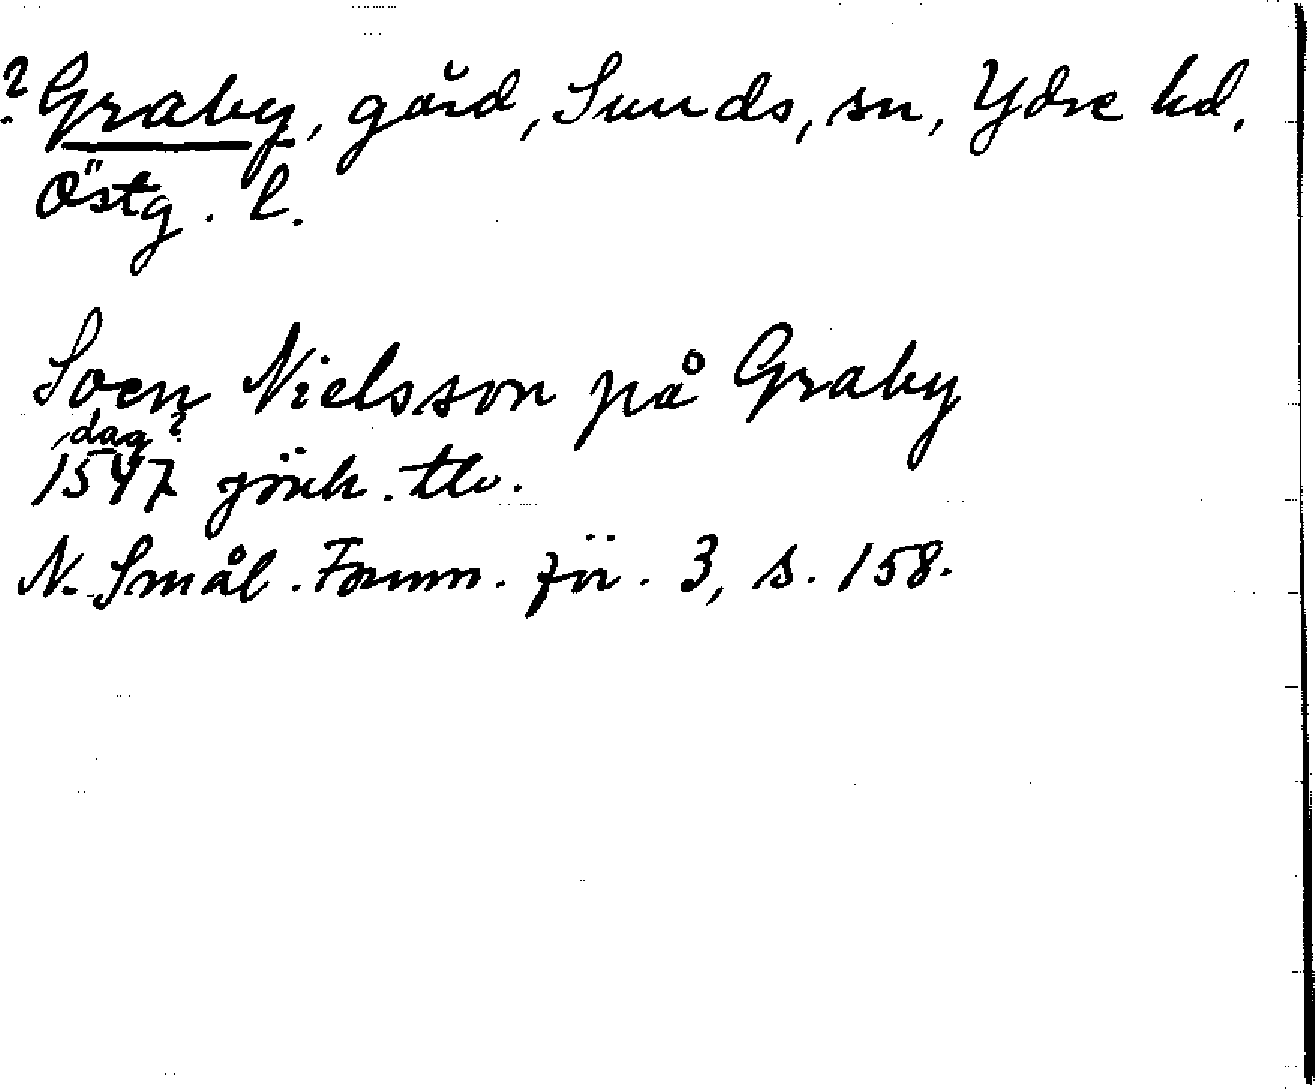 ? Graby, gård, Sunds, sn, Ydre hd,
Östg. l.
Soen Nielsson på Graby
dag?
1547 jönk. tb.
N. Smål. Fornm. för. 3, s. 158.